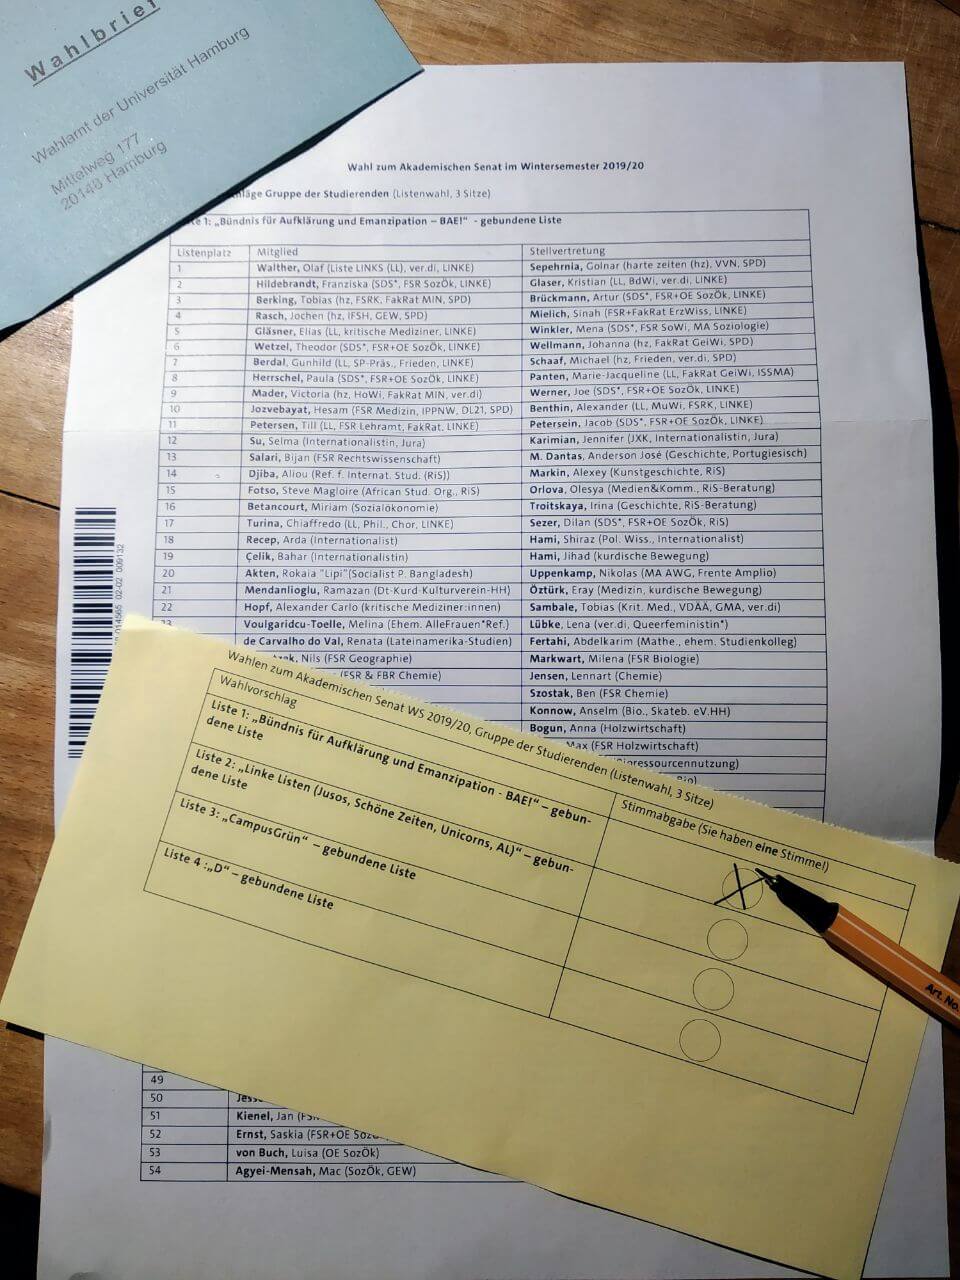 Wahlbrief
Wahlamt der Universität Hamburg
Mittelweg 177
20148 Hamburg
Wahl zum Akademischen Senat im Wintersemester 2019/20
Gruppe der Studierenden (Listenwahl, 3 Sitze)
1: „Bündnis für Aufklärung und Emanzipation – BAE!“ - gebundene Liste
Listenplatz Mitglied Stellvertretung
1 Walther, Olaf (Liste LINKS (LL), ver.di, LINKE) Sepehrnia, Golnar (harte zeiten (hz), VVN, SPD)
2 Hildebrandt, Franziska (SDS*, FSR SozÖk, LINKE) Glaser, Kristian (LL, BdWi, ver.di, LINKE)
3 Berking, Tobias (hz, FSRK, FakRat MIN, SPD) Brückmann, Artur (SDS*, FSR+OE SozÖk, LINKE)
4 Rasch, Jochen (hz, IFSH, GEW, SPD) Mielich, Sinah (FSR+FakRat ErzWiss, LINKE)
5 Gläsner, Elias (LL, kritische Mediziner, LINKE) Winkler, Mena (SDS*, FSR SoWi, MA Soziologie)
6 Wetzel, Theodor (SDS*, FSR+OE SozÖk, LINKE) Wellmann, Johanna (hz, FakRat GeiWi, SPD)
7 Berdal, Gunhild (LL, SP-Präs., Frieden, LINKE) Schaaf, Michael (hz, Frieden, ver.di, SPD)
8 Herrschel, Paula (SDS*, FSR+OE SozÖk, LINKE) Panten, Marie-Jacqueline (LL, FakRat GeiWi, ISSMA)
9 Mader, Victoria (hz, HoWi, FakRat MIN, ver.di) Werner, Joe (SDS*, FSR+OE SozÖk, LINKE)
10 Jozvebayat, Hesam (FSR Medizin, IPPNW, DL21, SPD) Benthin, Alexander (LL, MuWi, FSRK, LINKE)
11 Petersen, Till (LL, FSR Lehramt, FakRat, LINKE) Petersein, Jacob (SDS*, FSR+OE SozÖk, LINKE)
12 Su, Selma (Internationalistin, Jura) Karimian, Jennifer (JXK, Internationalistin, Jura)
13 Salari, Bijan (FSR Rechtswissenschaft) M. Dantas, Anderson José (Geschichte, Portugiesisch)
14 Djiba, Aliou (Ref. f. Internat. Stud. (RiS)) Markin, Alexey (Kunstgeschichte, RiS)
15 Fotso, Steve Magloire (African Stud. Org., RiS) Orlova, Olesya (Medien&Komm., RiS-Beratung)
16 Betancourt, Miriam (Sozialökonomie) Troitskaya, Irina (Geschichte, RiS-Beratung)
17 Turina, Chiaffredo (LL, Phil., Chor, LINKE) Sezer, Dilan (SDS*, FSR+OE SozÖk, RiS)
18 Recep, Arda (Internationalist) Hami, Shiraz (Pol. Wiss., Internationalist)
19 Çelik, Bahar (Internationalistin) Hami, Jihad (kurdische Bewegung)
20 Akten, Rokaia "Lipi"(Socialist P. Bangladesh) Uppenkamp, Nikolas (MA AWG, Frente Amplio)
21 Mendanlioglu, Ramazan (Dt-Kurd-Kulturverein-HH) Öztürk, Eray (Medizin, kurdische Bewegung)
22 Hopf, Alexander Carlo (kritische Mediziner:innen) Sambale, Tobias (Krit. Med., VDÄÄ, GMA, ver.di)
23 Voulgaridcu-Toelle, Melina (Ehem. AlleFrauen*Ref.) Lübke, Lena (ver.di, Queerfeministin*)
de Carvalho do Val, Renata (Lateinamerika-Studien) Fertahi, Abdelkarim (Mathe., ehem. Studienkolleg)
Nils (FSR Geographie) Markwart, Milena (FSR Biologie)
(FSR & FBR Chemie) Jensen, Lennart (Chemie)
Szostak, Ben (FSR Chemie)
Konnow, Anselm (Bio., Skateb. eV.HH)
Bogun, Anna (Holzwirtschaft)
Max (FSR Holzwirtschaft)
Wahlen zum Akademischen Senat WS 2019/20, Gruppe der Studierenden (Listenwahl, 3 Sitze)
Wahlvorschlag Stimmabgabe (Sie haben eine Stimme!)
Liste 1: „Bündnis für Aufklärung und Emanzipation - BAE!“ – gebun-
dene Liste
Liste 2: „Linke Listen (Jusos, Schöne Zeiten, Unicorns, AL)“ – gebun-
dene Liste
Liste 3: „CampusGrün“ – gebundene Liste
Liste 4 :„D“ – gebundene Liste
Art. No.
49
50
51 Kienel, Jan
52 Ernst, Saskia (FSR+OE
53 von Buch, Luisa (OE SozÖk)
54 Agyei-Mensah, Mac (SozÖk, GEW)